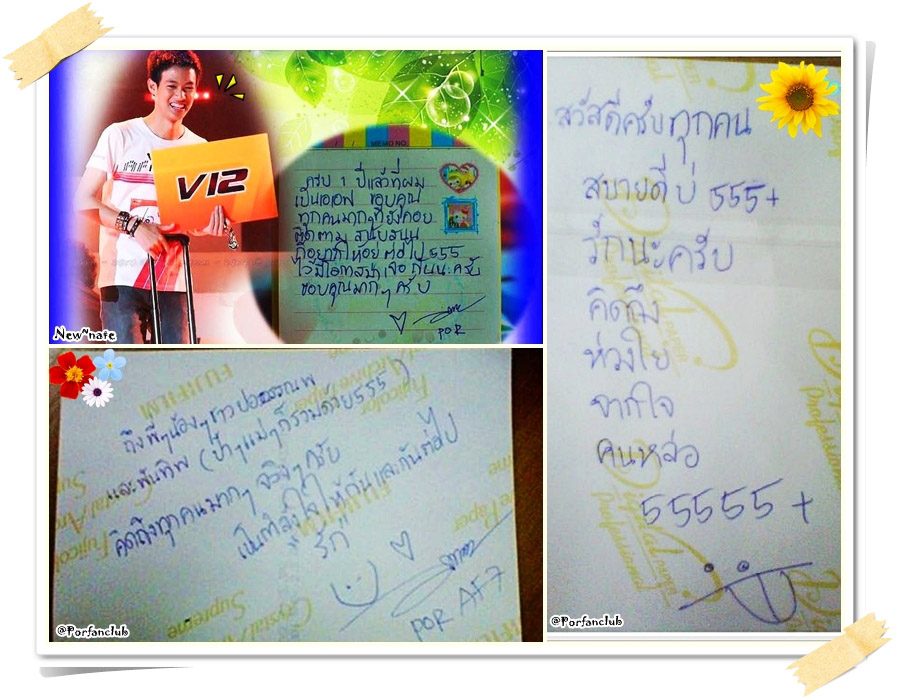 V12
MEMO NO.
ครบ 1 ปีแล้วที่ผม
เป็นเอเอฟ ขอบคุณ
ทุกคนมากๆที่ยังคอย
ติดตาม สนับสนุน
555
ไว้มีโอกาส เจอกันนะครับ
ขอบคุณมากๆครับ
POR
New~nate
สวัสดีครับทุกคน
สบายดีบ่ 555+
รักนะครับ
คิดถึง
ห่วงใย
จากใจ
คนหล่อ
55555+
@Porfanclub
ถึงพี่ๆน้องๆชาวปอ
และพันทิพ (ป้าๆแม่ๆก็รวมด้วย555)
คิดถึงทุกคนมากๆ จริงๆครับ
เป็นกำลังใจให้กันและกันต่อไป
รัก
POR AF7
@Porfanclub